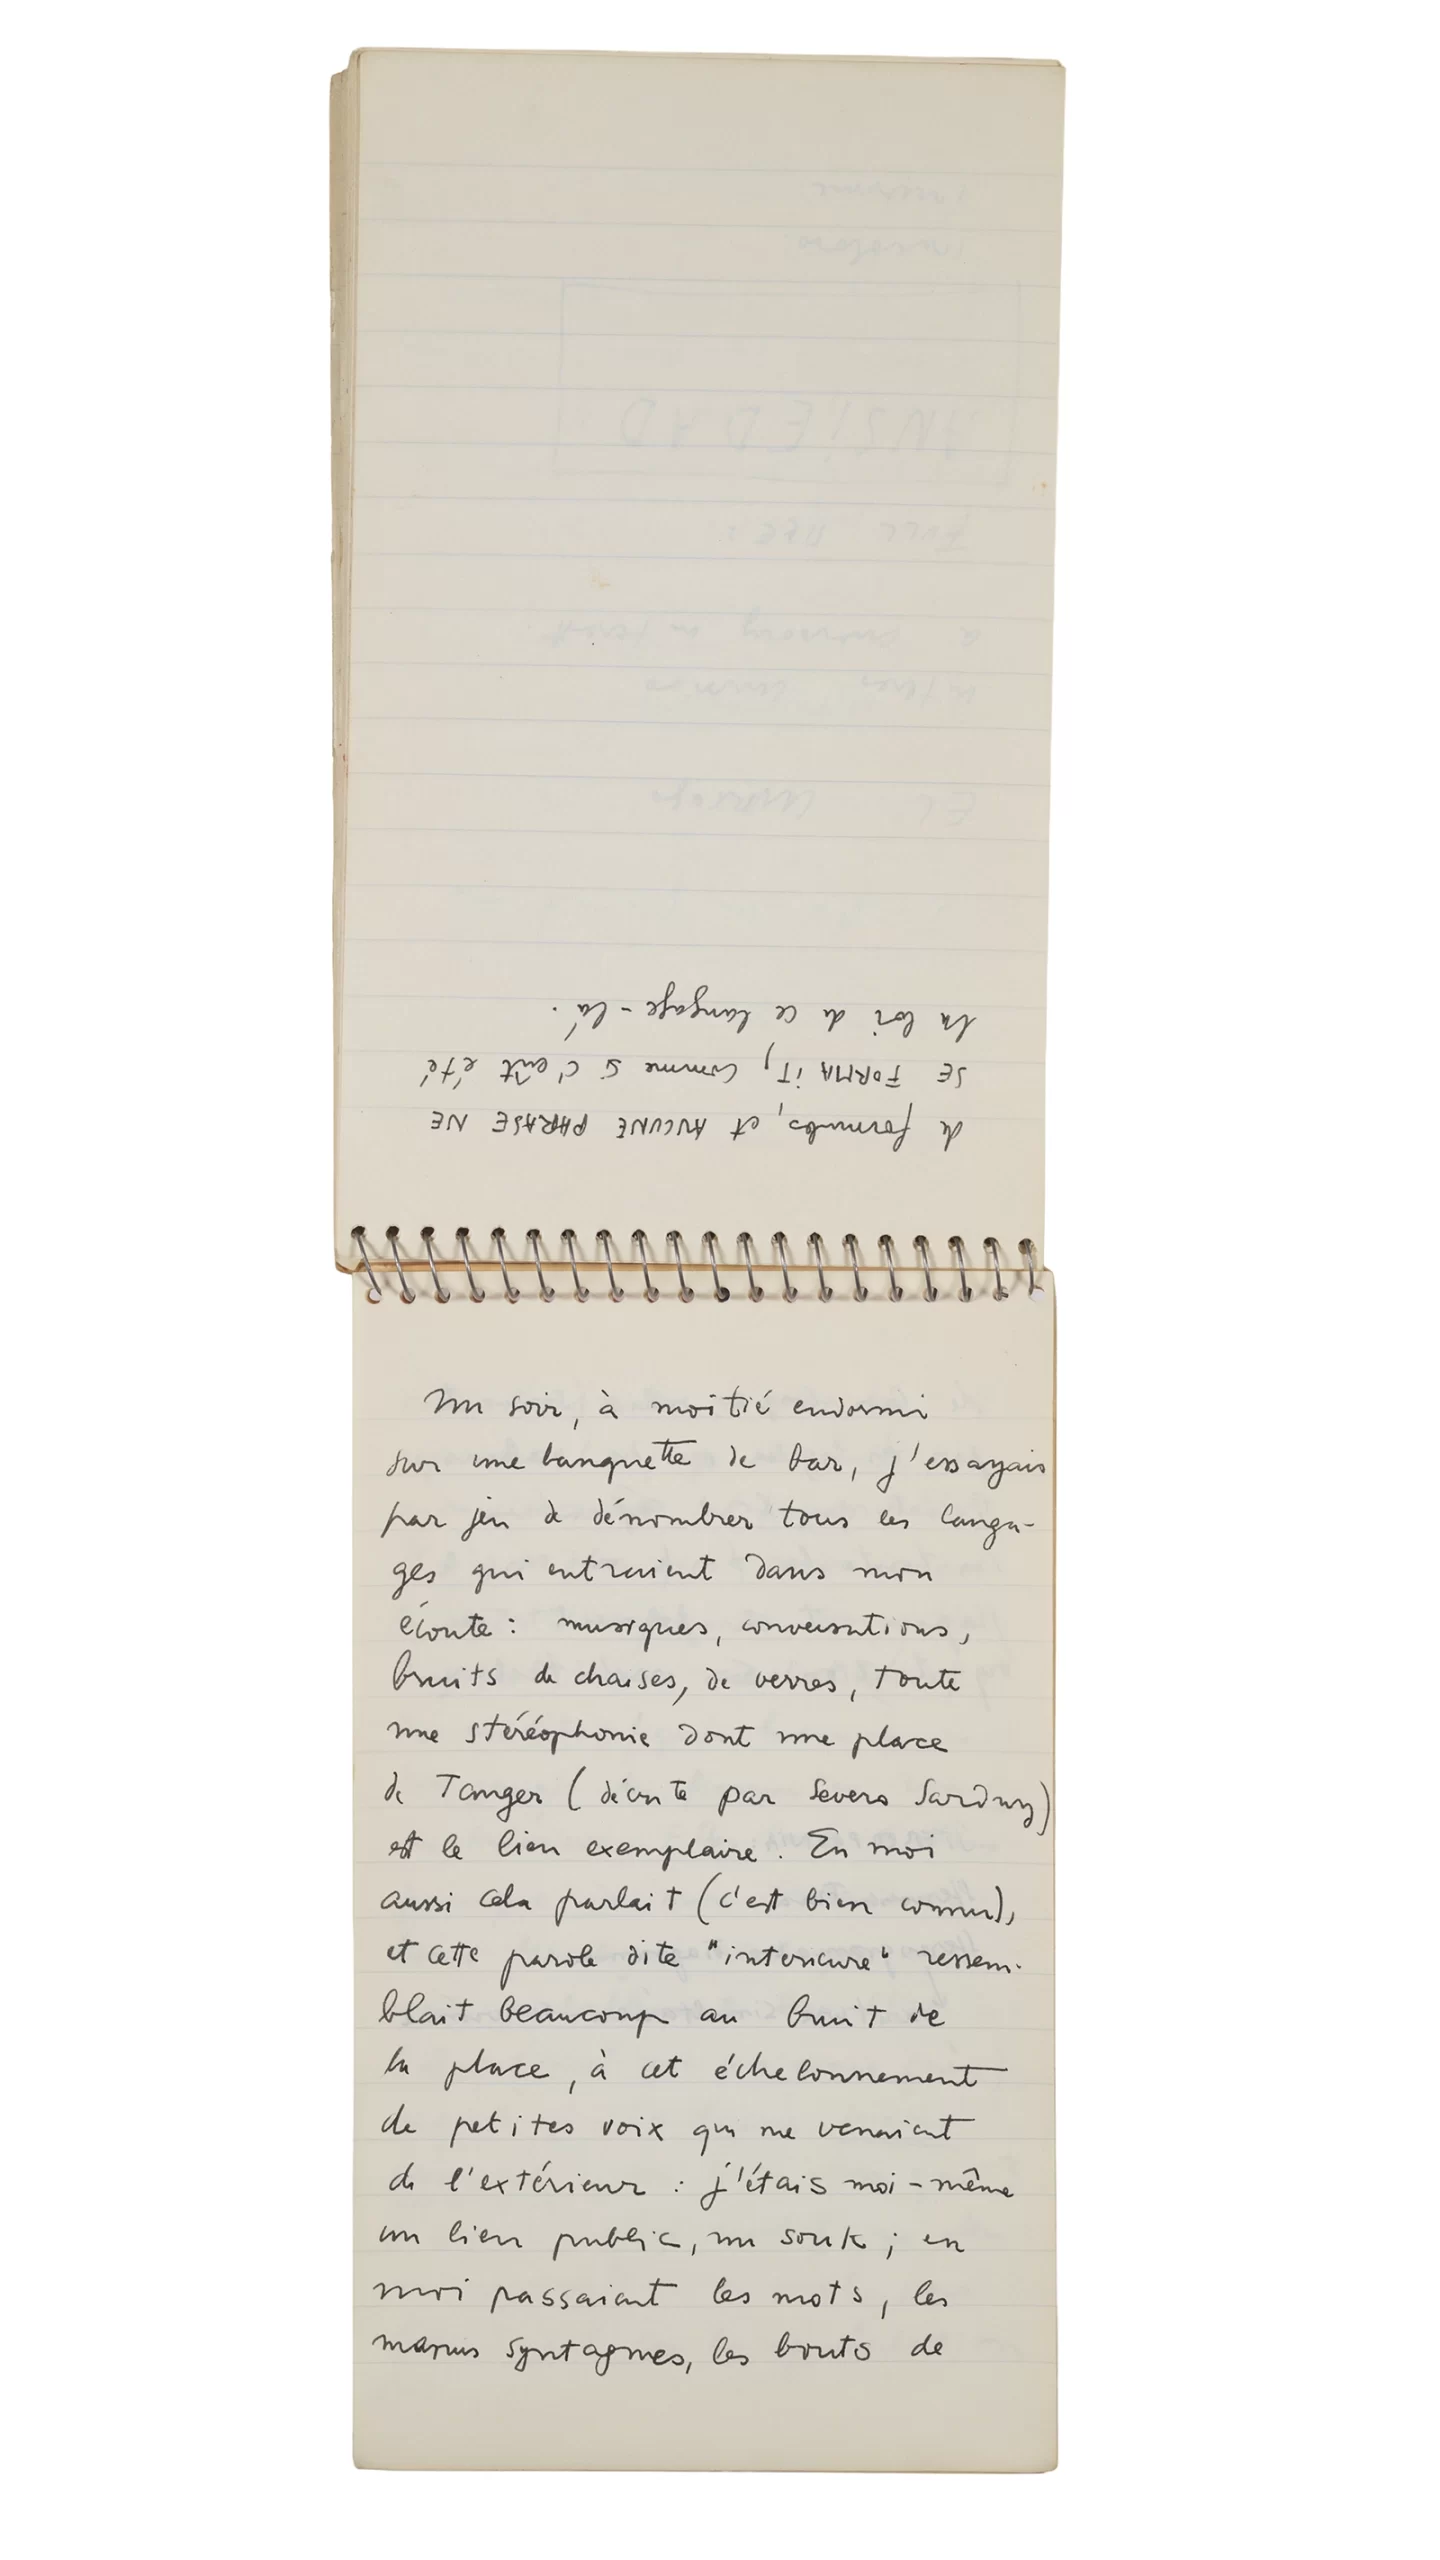 Un soir, à moitié endormi
sur une banquette de bar, j'essayais
par jeu de dénombrer tous les langa-
ges qui entraient dans mon
écoute : musiques, conversations,
bruits de chaises, de verres, toute
une stéréophonie dont une place
de Tanger (décrite par Severo Sarduy)
est le lieu exemplaire. En moi
aussi cela parlait (c'est bien connu),
et cette parole dite "interieure" ressem-
blait beaucoup au bruit de
la place, à cet échelonnement
de petites voix qui me venaient
de l'extérieur : j'étais moi-même
un lieu public, un souk ; en
moi passaient les mots, les
menus syntagmes, les bouts de
de formules, et AUCUNE PHRASE NE
SE FORMAIT, comme si c'eût été
la loi de ce langage-là.
ANSIEDAD